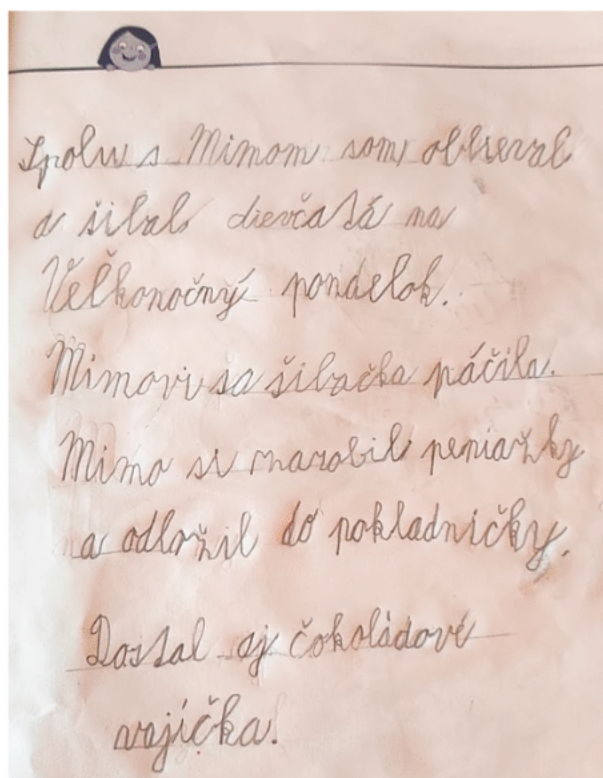 Spolu s Mimom som oblieval
a šibal dievčatá na
Veľkonočný pondelok.
Mimovi sa šibačka páčila.
Mimo si zarobil peniažky
a odložil do pokladničky.
Dostal aj čokoládové
vajíčka.